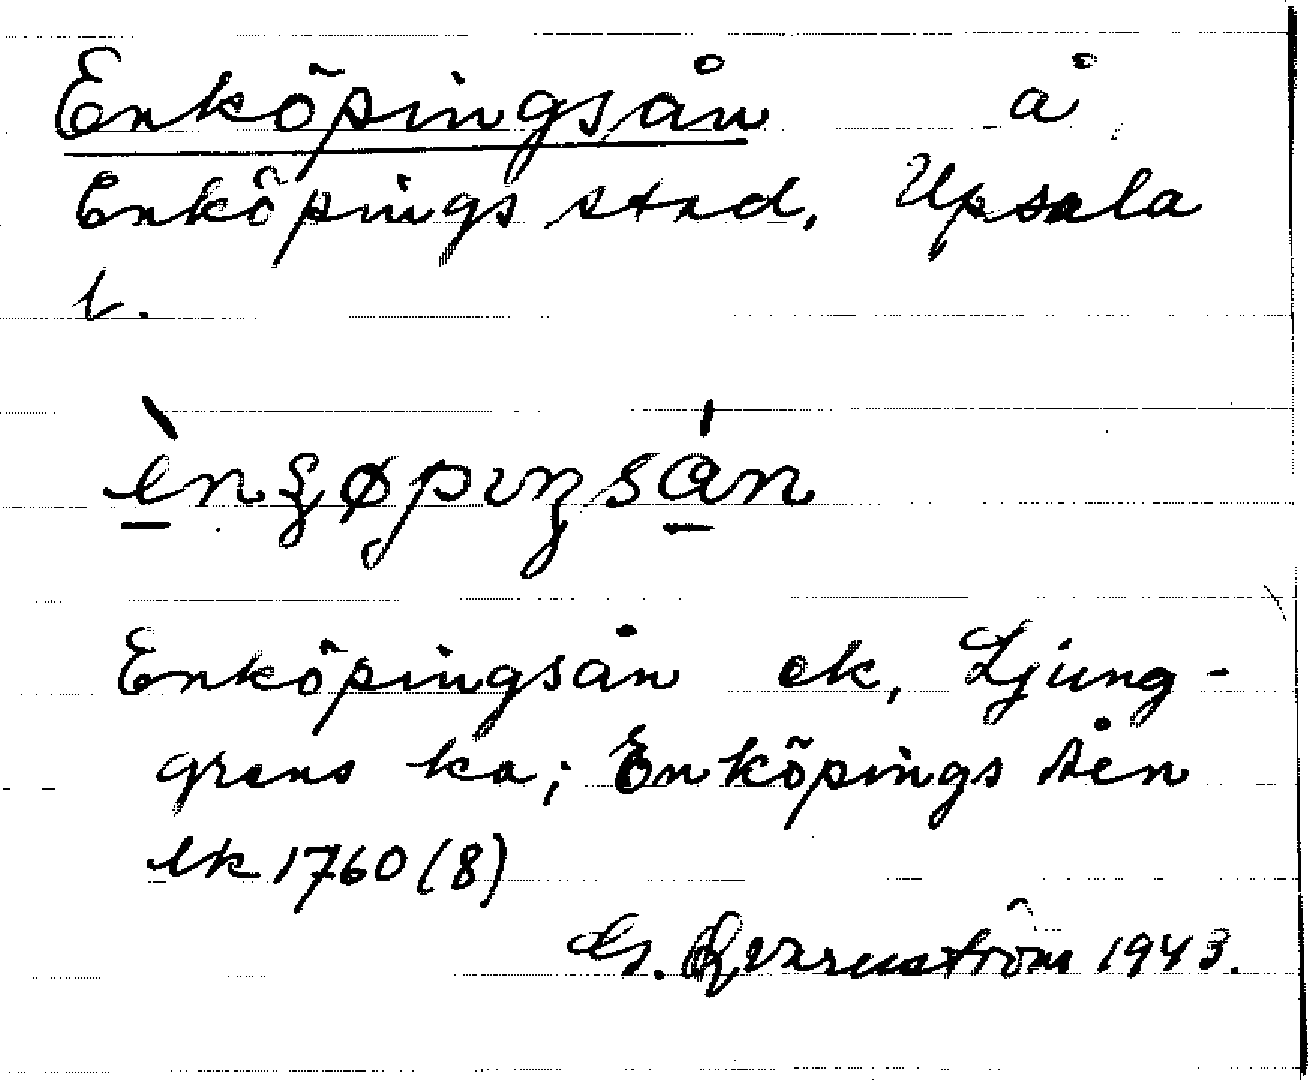 Enköpingsån å
Enköpings stad, Upsala
l.
èn̡ɟøpɪŋsán
Enköpingsån ek, Ljung-
grens ka; Enköpings Åen
lk 1760 (8)
G. 1943.